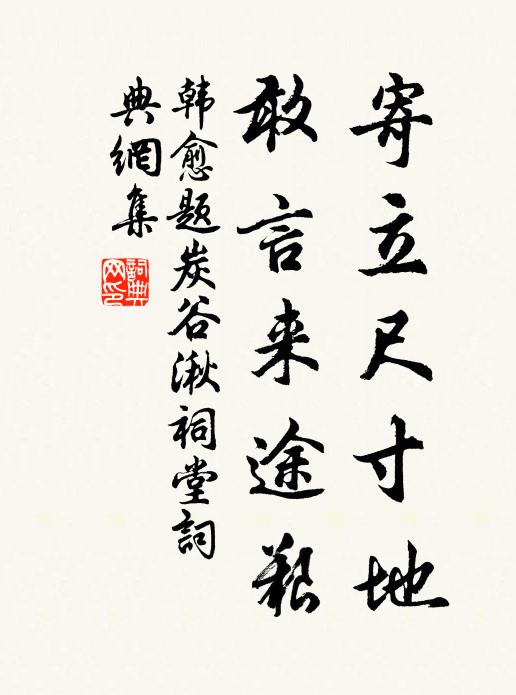 寄立尺寸地
敢言来途艱
韩愈题炭谷湫祠堂詞
典網集
詞典网印